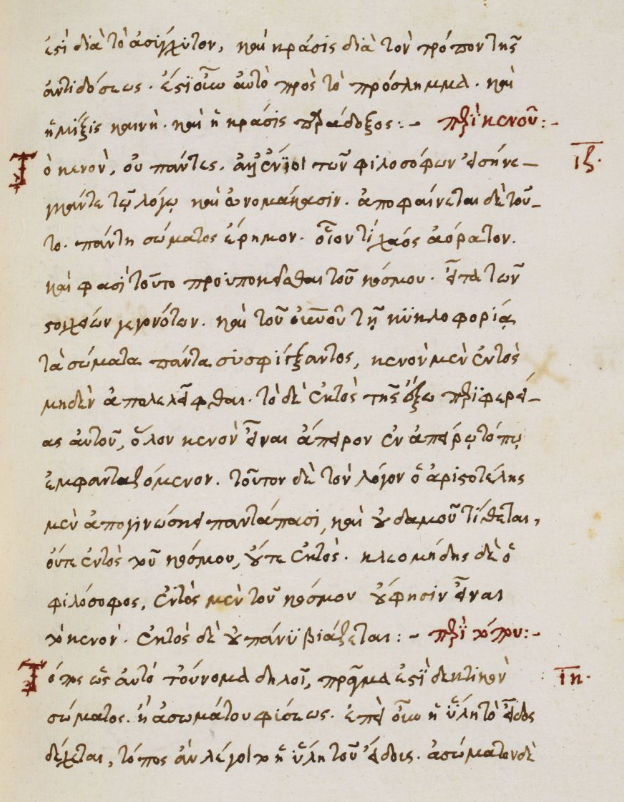 ἐστὶ διὰ τὸ ἀσύγχυτον, καὶ κρᾶσις διὰ τὸν τρόπον τῆς
ἀντιδόσεως. ἔστιν οὖν αὐτὸ πρὸς τὸ πρόσλημμα. καὶ
ἡ μίξις καινὴ. καὶ ἡ κρᾶσις παράδοξος:- περὶ κενοῦ:-
Τὸ κενὸν, οὐ πάντες. ἀλλ' ἔνιοι τῶν φιλοσόφων εἰσήνε- ιζ.
γκάν τε τῷ λόγῳ καὶ ὠνομάκασιν. ἀποφαίνεται δὲ τοῦ-
το. πάντη σώματος ἔρημον. οἷόν τι χάος ἀόρατον.
καὶ φασὶ τοῦτο προϋποκεῖσθαι τοῦ κόσμου. εἶτα τῶν
στοιχείων γεγονότων. καὶ τοῦ οὐρανοῦ τῇ κυκλοφορίᾳ
τὰ σώματα πάντα συσφίγξαντος, κενὸν μὲν ἐντὸς
μηδὲν ἀπολελεῖφθαι. τὸ δὲ ἐκτὸς τῆς ἔξω περιφερεί-
ας αὐτοῦ, ὅλον κενὸν εἶναι ἄπειρον ἐν ἀπείρῳ τόπῳ
ἐμφανταζόμενον. τοῦτον δὲ τὸν λόγον ὁ ἀριστοτέλης
μὲν ἀπογινώσκει παντάπασι, καὶ οὐδαμοῦ τίθεται,
οὔτε ἐντὸς τοῦ κόσμου, οὔτε ἐκτὸς. κλεομήδης δὲ ὁ
φιλόσοφος, ἐντὸς μὲν τοῦ κόσμου οὔ φησιν εἶναι
τὸ κενὸν. ἐκτὸς δὲ οὐ πάνυ βιάζεται:- περὶ τόπου:-
Τόπος ὡς αὐτὸ τοὔνομα δηλοῖ, πρᾶγμα ἐστὶ δεκτικὸν ιη.
σώματος. ἢ ἀσωμάτου φύσεως. ἐπεὶ οὖν ἡ ὕλη τὸ εἶδος
δέχεται, τόπος ἂν λέγοιτο ἡ ὕλη τοῦ εἴδους. ἀσώματον δὲ